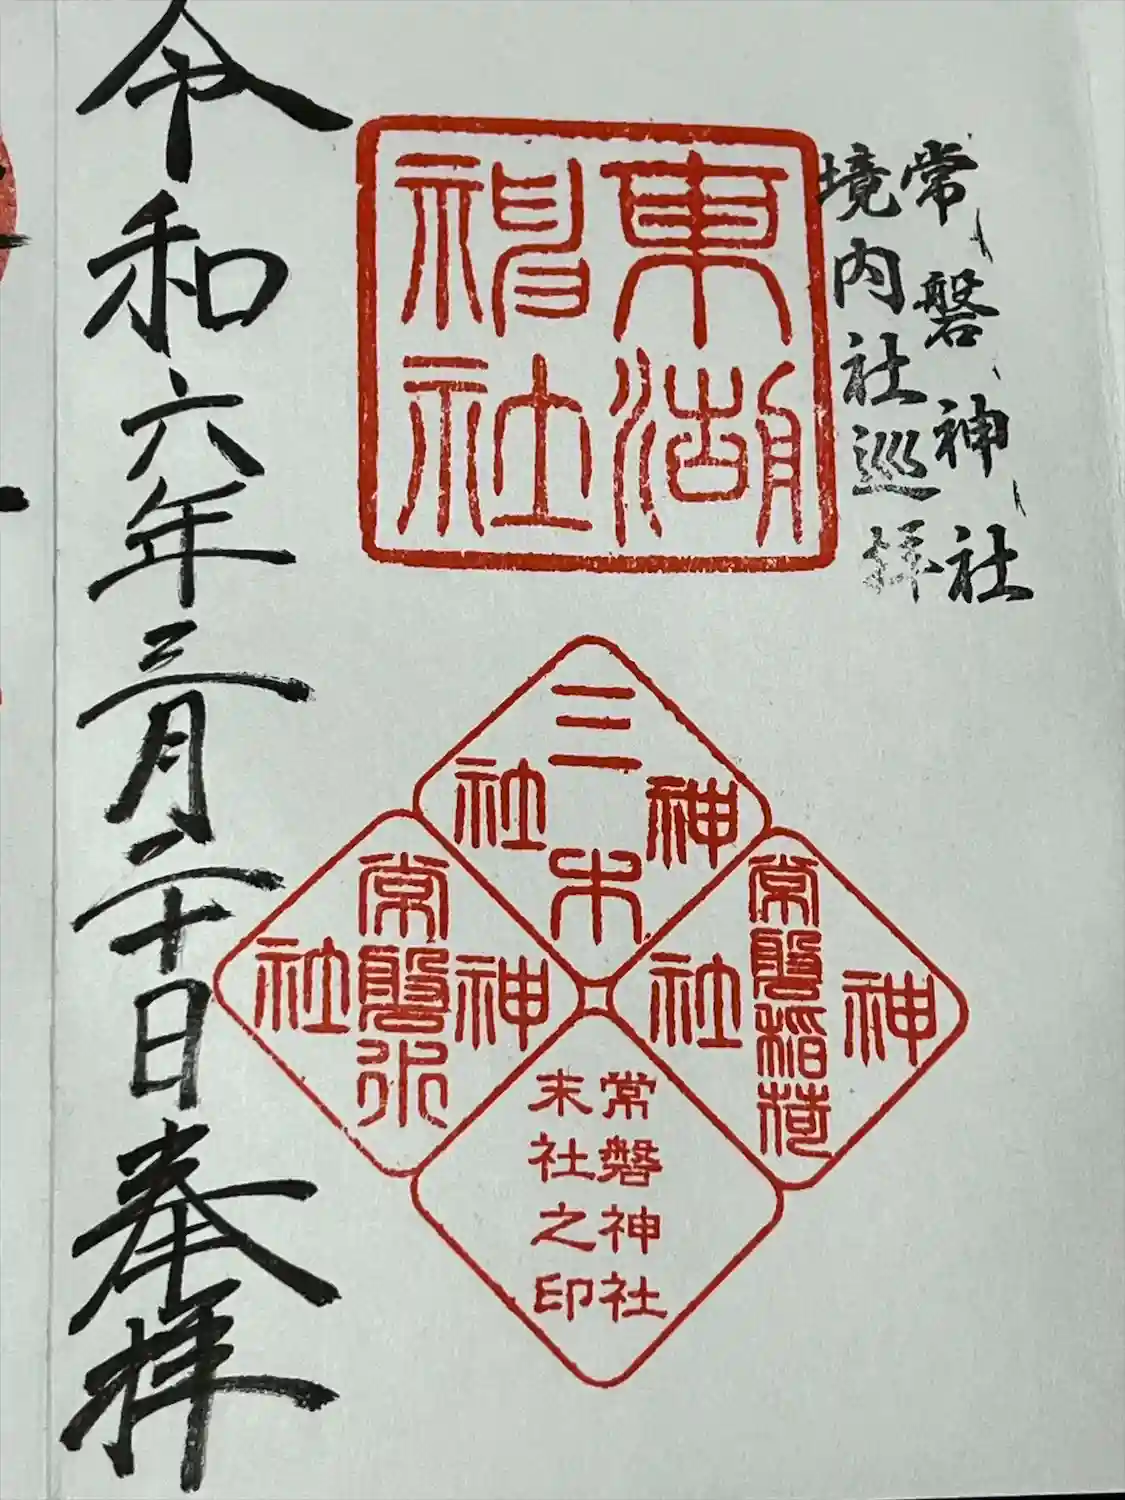 常磐神社
境内社巡拝
東湖
神社
三木神社
常磐稲荷神社
常磐水神社
常磐神社
末社之印
令和六年三月二十日奉拝